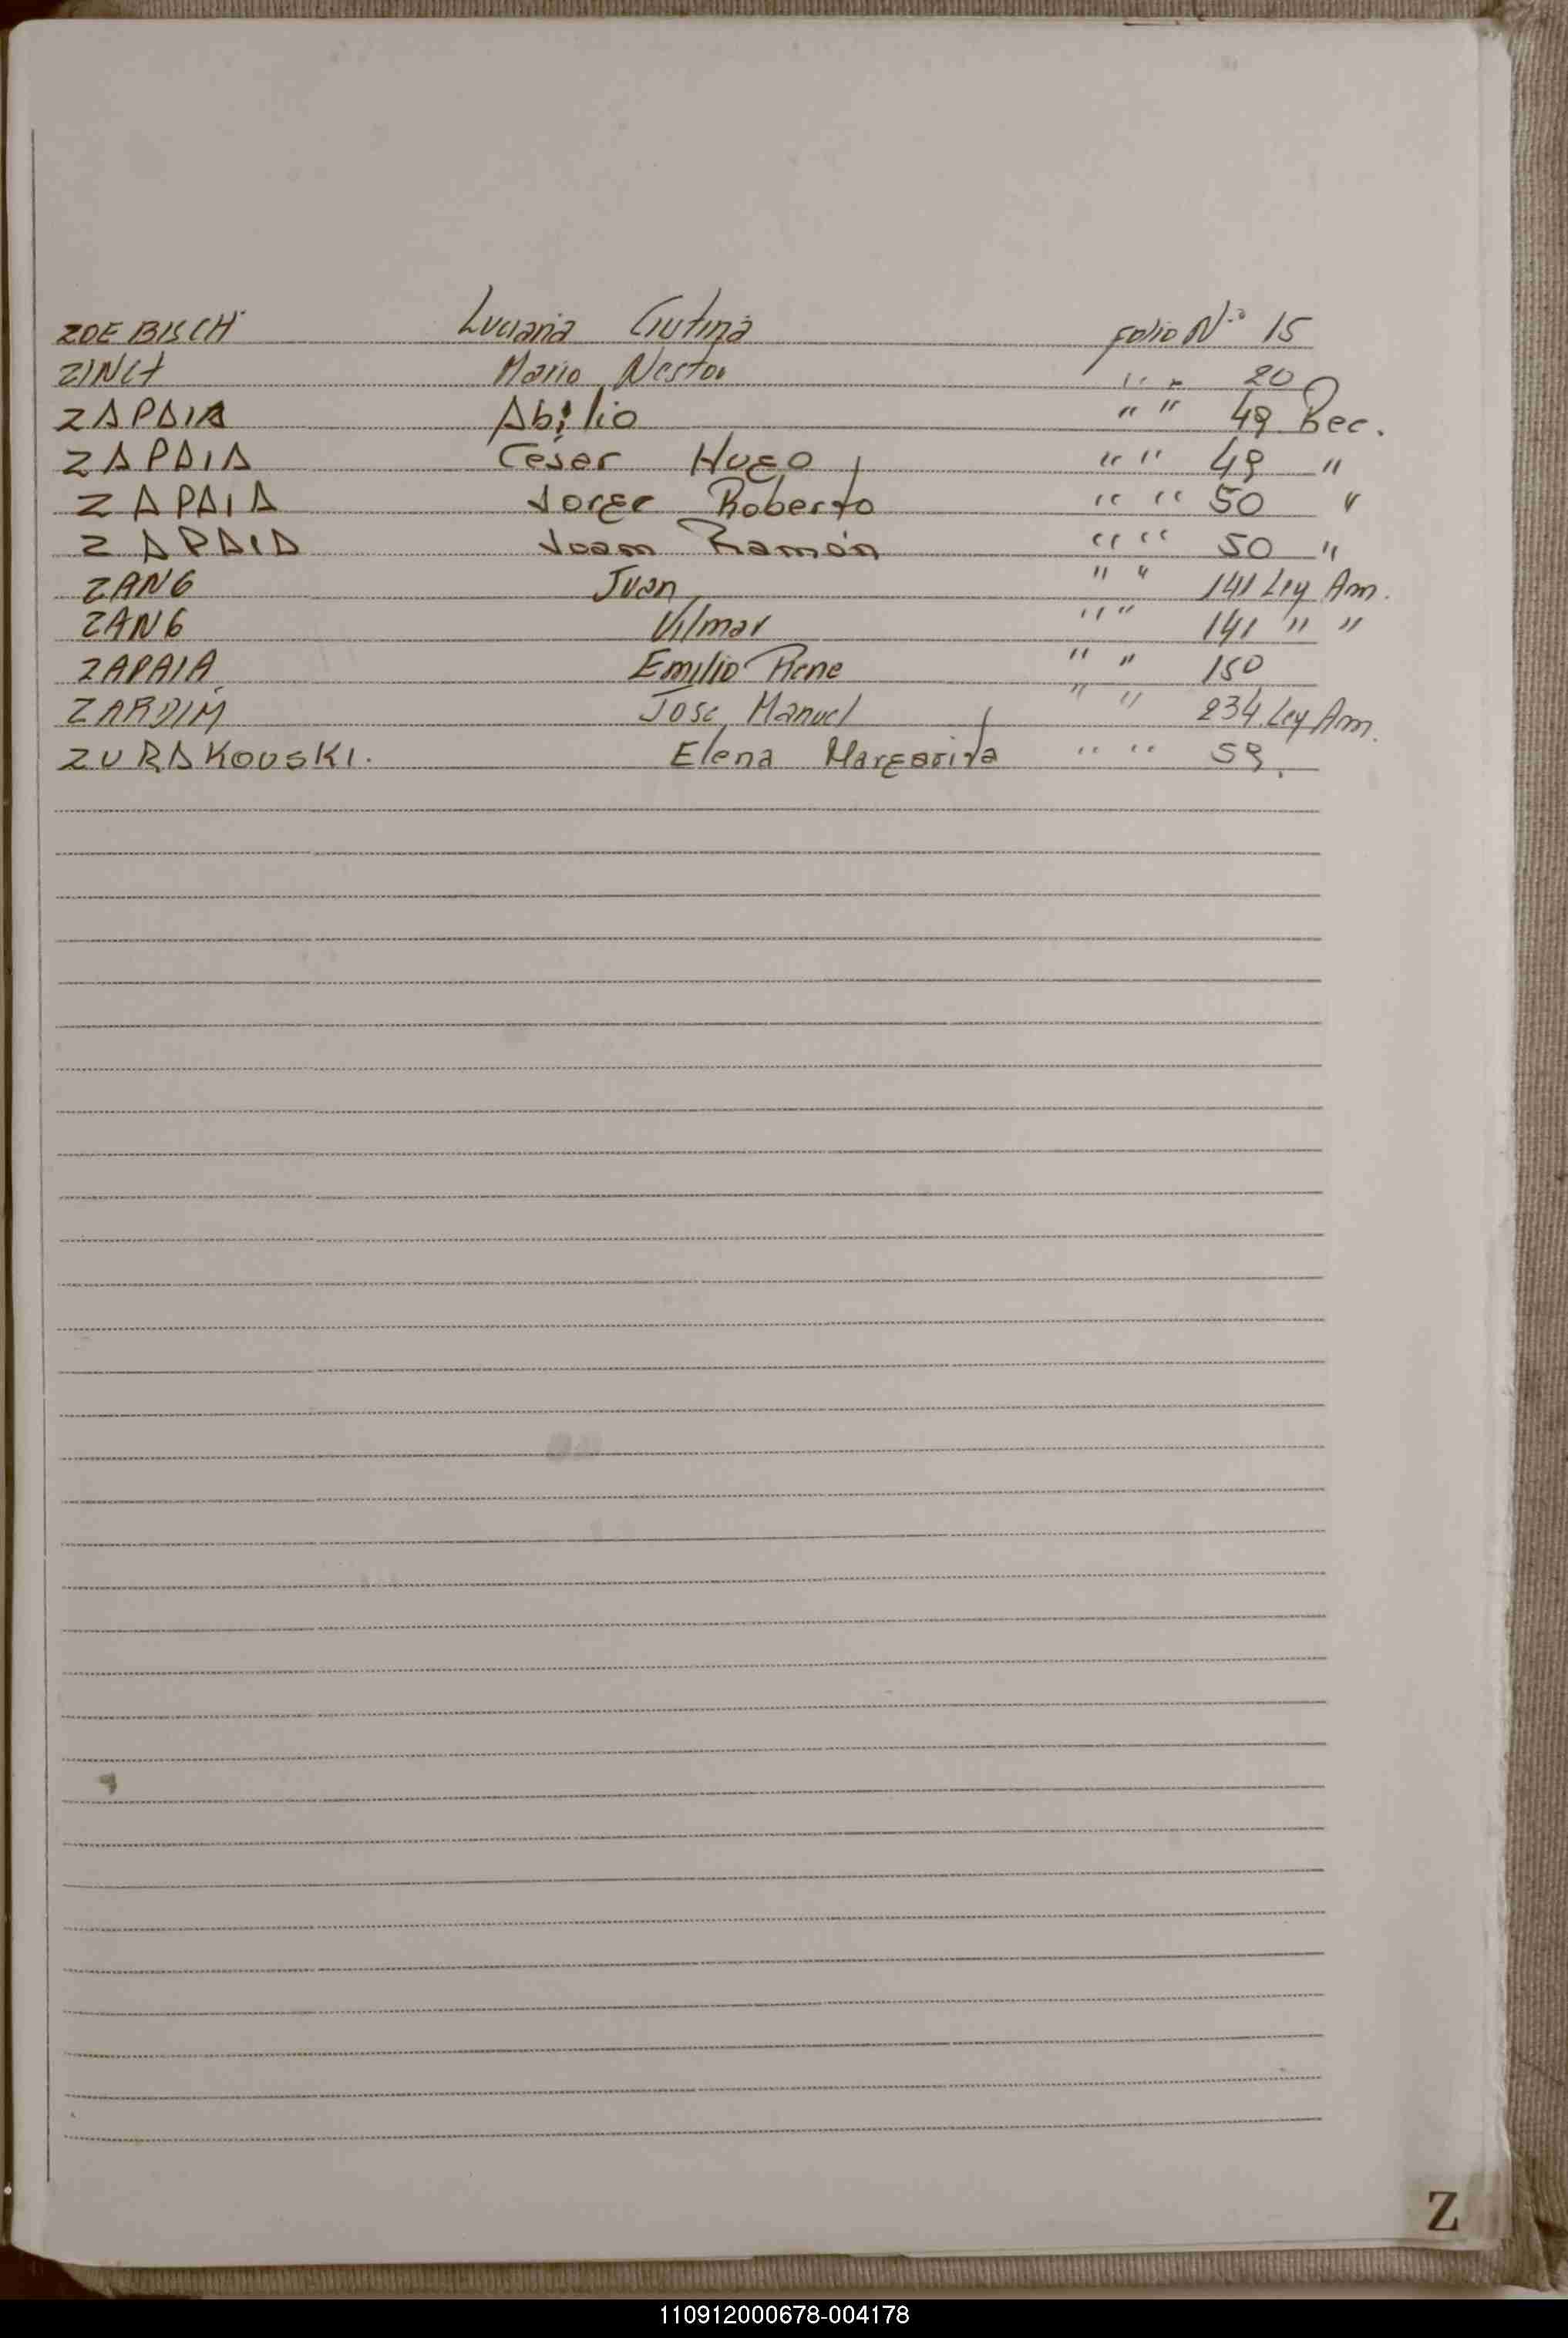 ZOEBISCH Luciana Cristina Folio Nº 15
ZINCH Mario Nestor " " 20
ZAPAIA Abilio " " 49 Rec.
ZAPAIA César Hugo " " 49 "
ZAPAIA Jorge Roberto " " 50 "
ZAPAIA Juan Ramón " " 50 "
ZANG Juan " " 141 Ley Am.
ZANG Vilmar " " 141 " "
ZAPAIA Emilio Rene " " 150
ZARDIM Jose Manuel " " 234 Ley Am.
ZURAKOUSKI. Elena Margarita " " 59.
Z
110912000678-004178